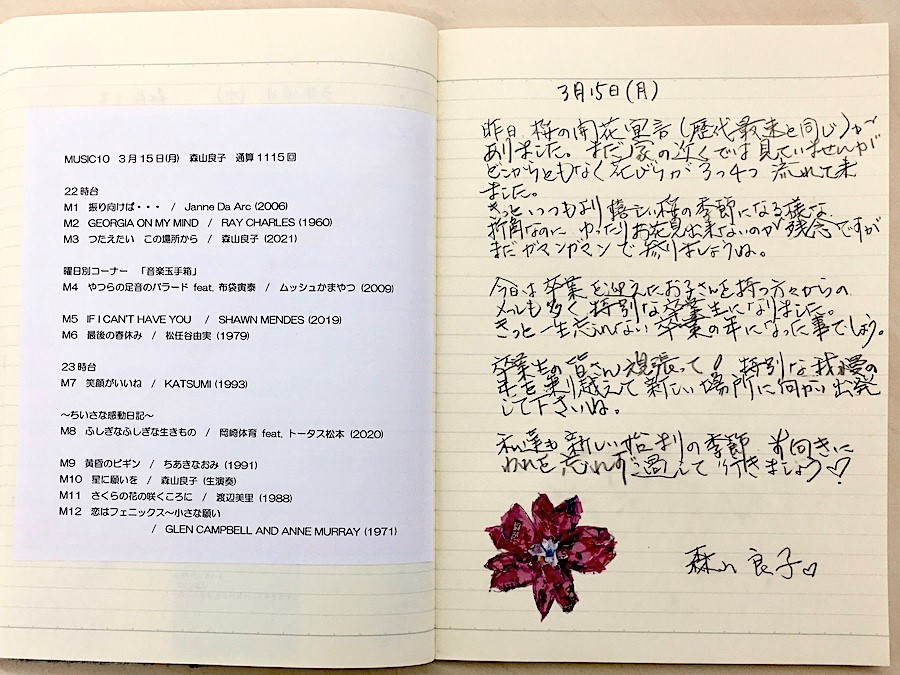 MUSIC10 3月15日(月) 森山良子 通算1115回
22時台
M1 振り向けば・・・ / Janne Da Arc (2006)
M2 GEORGIA ON MY MIND / RAY CHARLES (1960)
M3 つたえたい この場所から / 森山良子 (2021)
曜日別コーナー 「音楽玉手箱」
M4 やつらの足音のバラード feat. 布袋寅泰 / ムッシュかまやつ (2009)
M5 IF I CAN'T HAVE YOU / SHAWN MENDES (2019)
M6 最後の春休み / 松任谷由実 (1979)
23時台
M7 笑顔がいいね / KATSUMI (1993)
～ちいさな感動日記～
M8 ふしぎなふしぎな生きもの / 岡崎体育 feat. トータス松本 (2020)
M9 黄昏のビギン / ちあきなおみ (1991)
M10 星に願いを / 森山良子 (生演奏)
M11 さくらの花の咲くころに / 渡辺美里 (1988)
M12 恋はフェニックス～小さな願い
/ GLEN CAMPBELL AND ANNE MURRAY (1971)
3月15日(月)
昨日 桜の開花宣言(歴代最速と同じ)が
ありました。まだ家の近くでは見ていませんが
どこからともなく花びらが3つ4つ 流れて来
ました。
きっといつもより嬉しい桜の季節になる様な
折角なのに ゆったりお花見出来ないのが残念ですが
まだガマンガマンで参りましょうね。
今日は卒業を迎えたお子さんを持つ方々からの
メールも多く 特別な卒業生になりました。
きっと一生忘れない卒業の年になった事でしょう。
卒業生の皆さん頑張って! 特別な我慢の
年を乗り越えて新しい場所に向かい出発
して下さいね。
私達も新しい始まりの季節 前向きに
われを忘れず過して行きましょう♡
森山良子♡